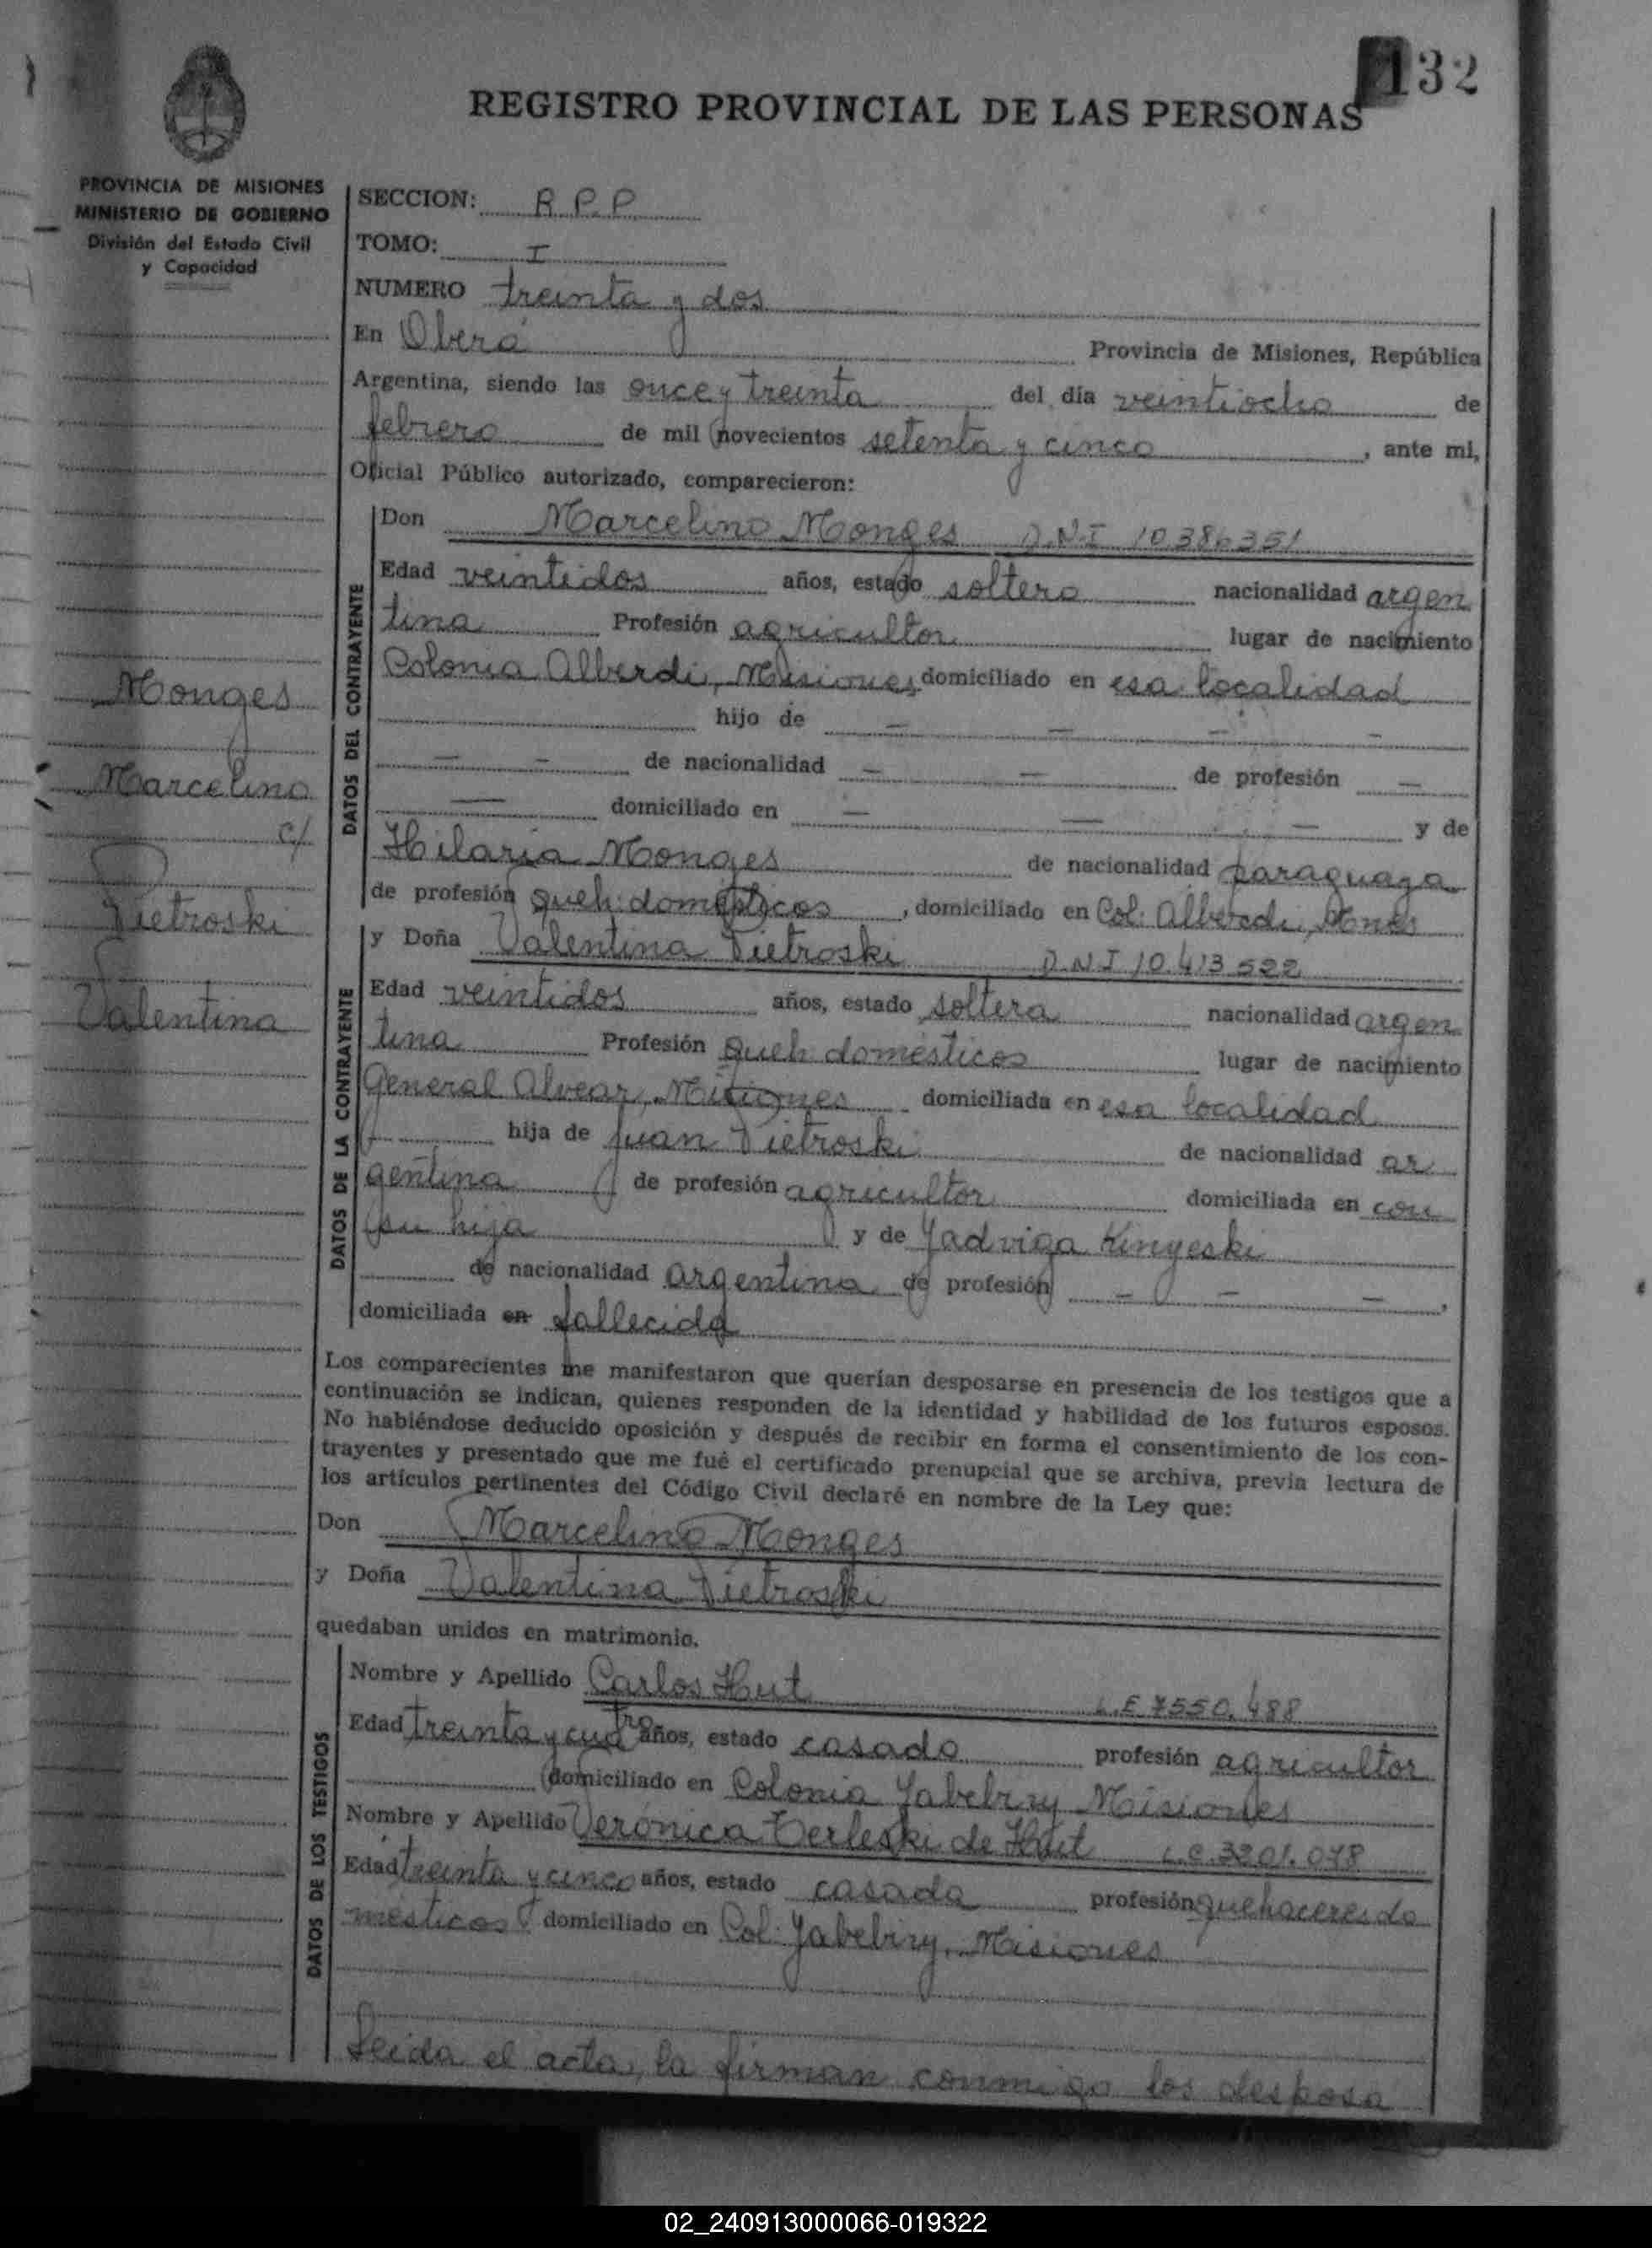 132
REGISTRO PROVINCIAL DE LAS PERSONAS
PROVINCIA DE MISIONES
MINISTERIO DE GOBIERNO
División del Estado Civil
y Capacidad
SECCION: R.P.P
TOMO: I
NUMERO treinta y dos
En Oberá Provincia de Misiones, República
Argentina, siendo las once y treinta del día veintiocho de
febrero de mil novecientos setenta y cinco, ante mi,
Oficial Público autorizado, comparecieron:
Monges
Marcelino
c/
Pietroski
Valentina
DATOS DEL CONTRAYENTE
Don Marcelino Monges D.N.I 10386351
Edad veintidos años, estado soltero nacionalidad argen
tina Profesión agricultor lugar de nacimiento
Colonia Alberdi, Misiones domiciliado en esa localidad
hijo de — — — —
— — de nacionalidad — — de profesión —
— domiciliado en — — — y de
Hilaria Monges de nacionalidad paraguaya
de profesión queh. domésticos, domiciliado en Col: Alberdi, Mnes
DATOS DE LA CONTRAYENTE
y Doña Valentina Pietroski D.N.I 10.413.522
Edad veintidos años, estado soltera nacionalidad argen
tina Profesión queh domésticos lugar de nacimiento
General Alvear, Misiones domiciliada en esa localidad
hija de Juan Pietroski de nacionalidad ar
gentina de profesión agricultor domiciliada en con
su hija y de Yadviga Kinyeski
de nacionalidad argentina de profesión — — —,
domiciliada en fallecida
Los comparecientes me manifestaron que querían desposarse en presencia de los testigos que a
continuación se indican, quienes responden de la identidad y habilidad de los futuros esposos.
No habiéndose deducido oposición y después de recibir en forma el consentimiento de los con-
trayentes y presentado que me fué el certificado prenupcial que se archiva, previa lectura de
los artículos pertinentes del Código Civil declaré en nombre de la Ley que:
Don Marcelino Monges
y Doña Valentina Pietroski
quedaban unidos en matrimonio.
DATOS DE LOS TESTIGOS
Nombre y Apellido Carlos Hut L.E 7550.488
Edad treinta y cuatro años, estado casado profesión agricultor
domiciliado en Colonia Yabebiry Misiones
Nombre y Apellido Verónica Terleski de Hut L.C. 3201.078
Edad treinta y cinco años, estado casada profesión quehaceres do
mésticos domiciliado en Col: Yabebiry, Misiones
Leida el acta, la firman conmigo los desposa
02_240913000066-019322